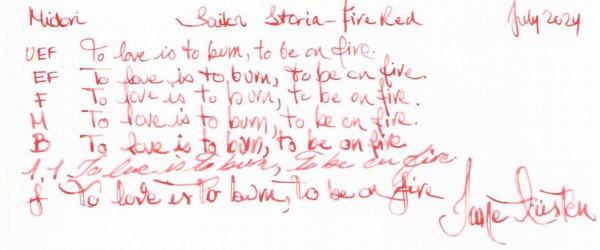 Midori Sailor Storia - Fire Red July 2024
UEF To love is to burn, to be on fire.
EF To love is to burn, to be on fire.
F To love is to burn, to be on fire.
M To love is to burn, to be on fire.
B To love is to burn, to be on fire.
1.1 To love is to burn, to be on fire
f To love is to burn, to be on fire
Jane Austen